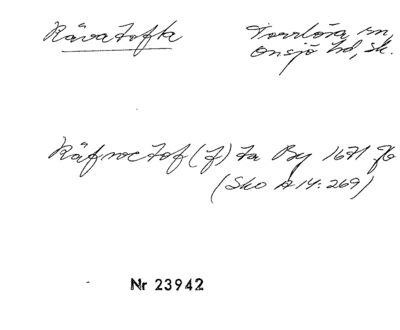 Råvatofta
Torrlösa sn,
Onsjö hd, Sk.
Råfwetof(f)ta By 1671 Jb
(Sko A 14:269)
Nr 23942